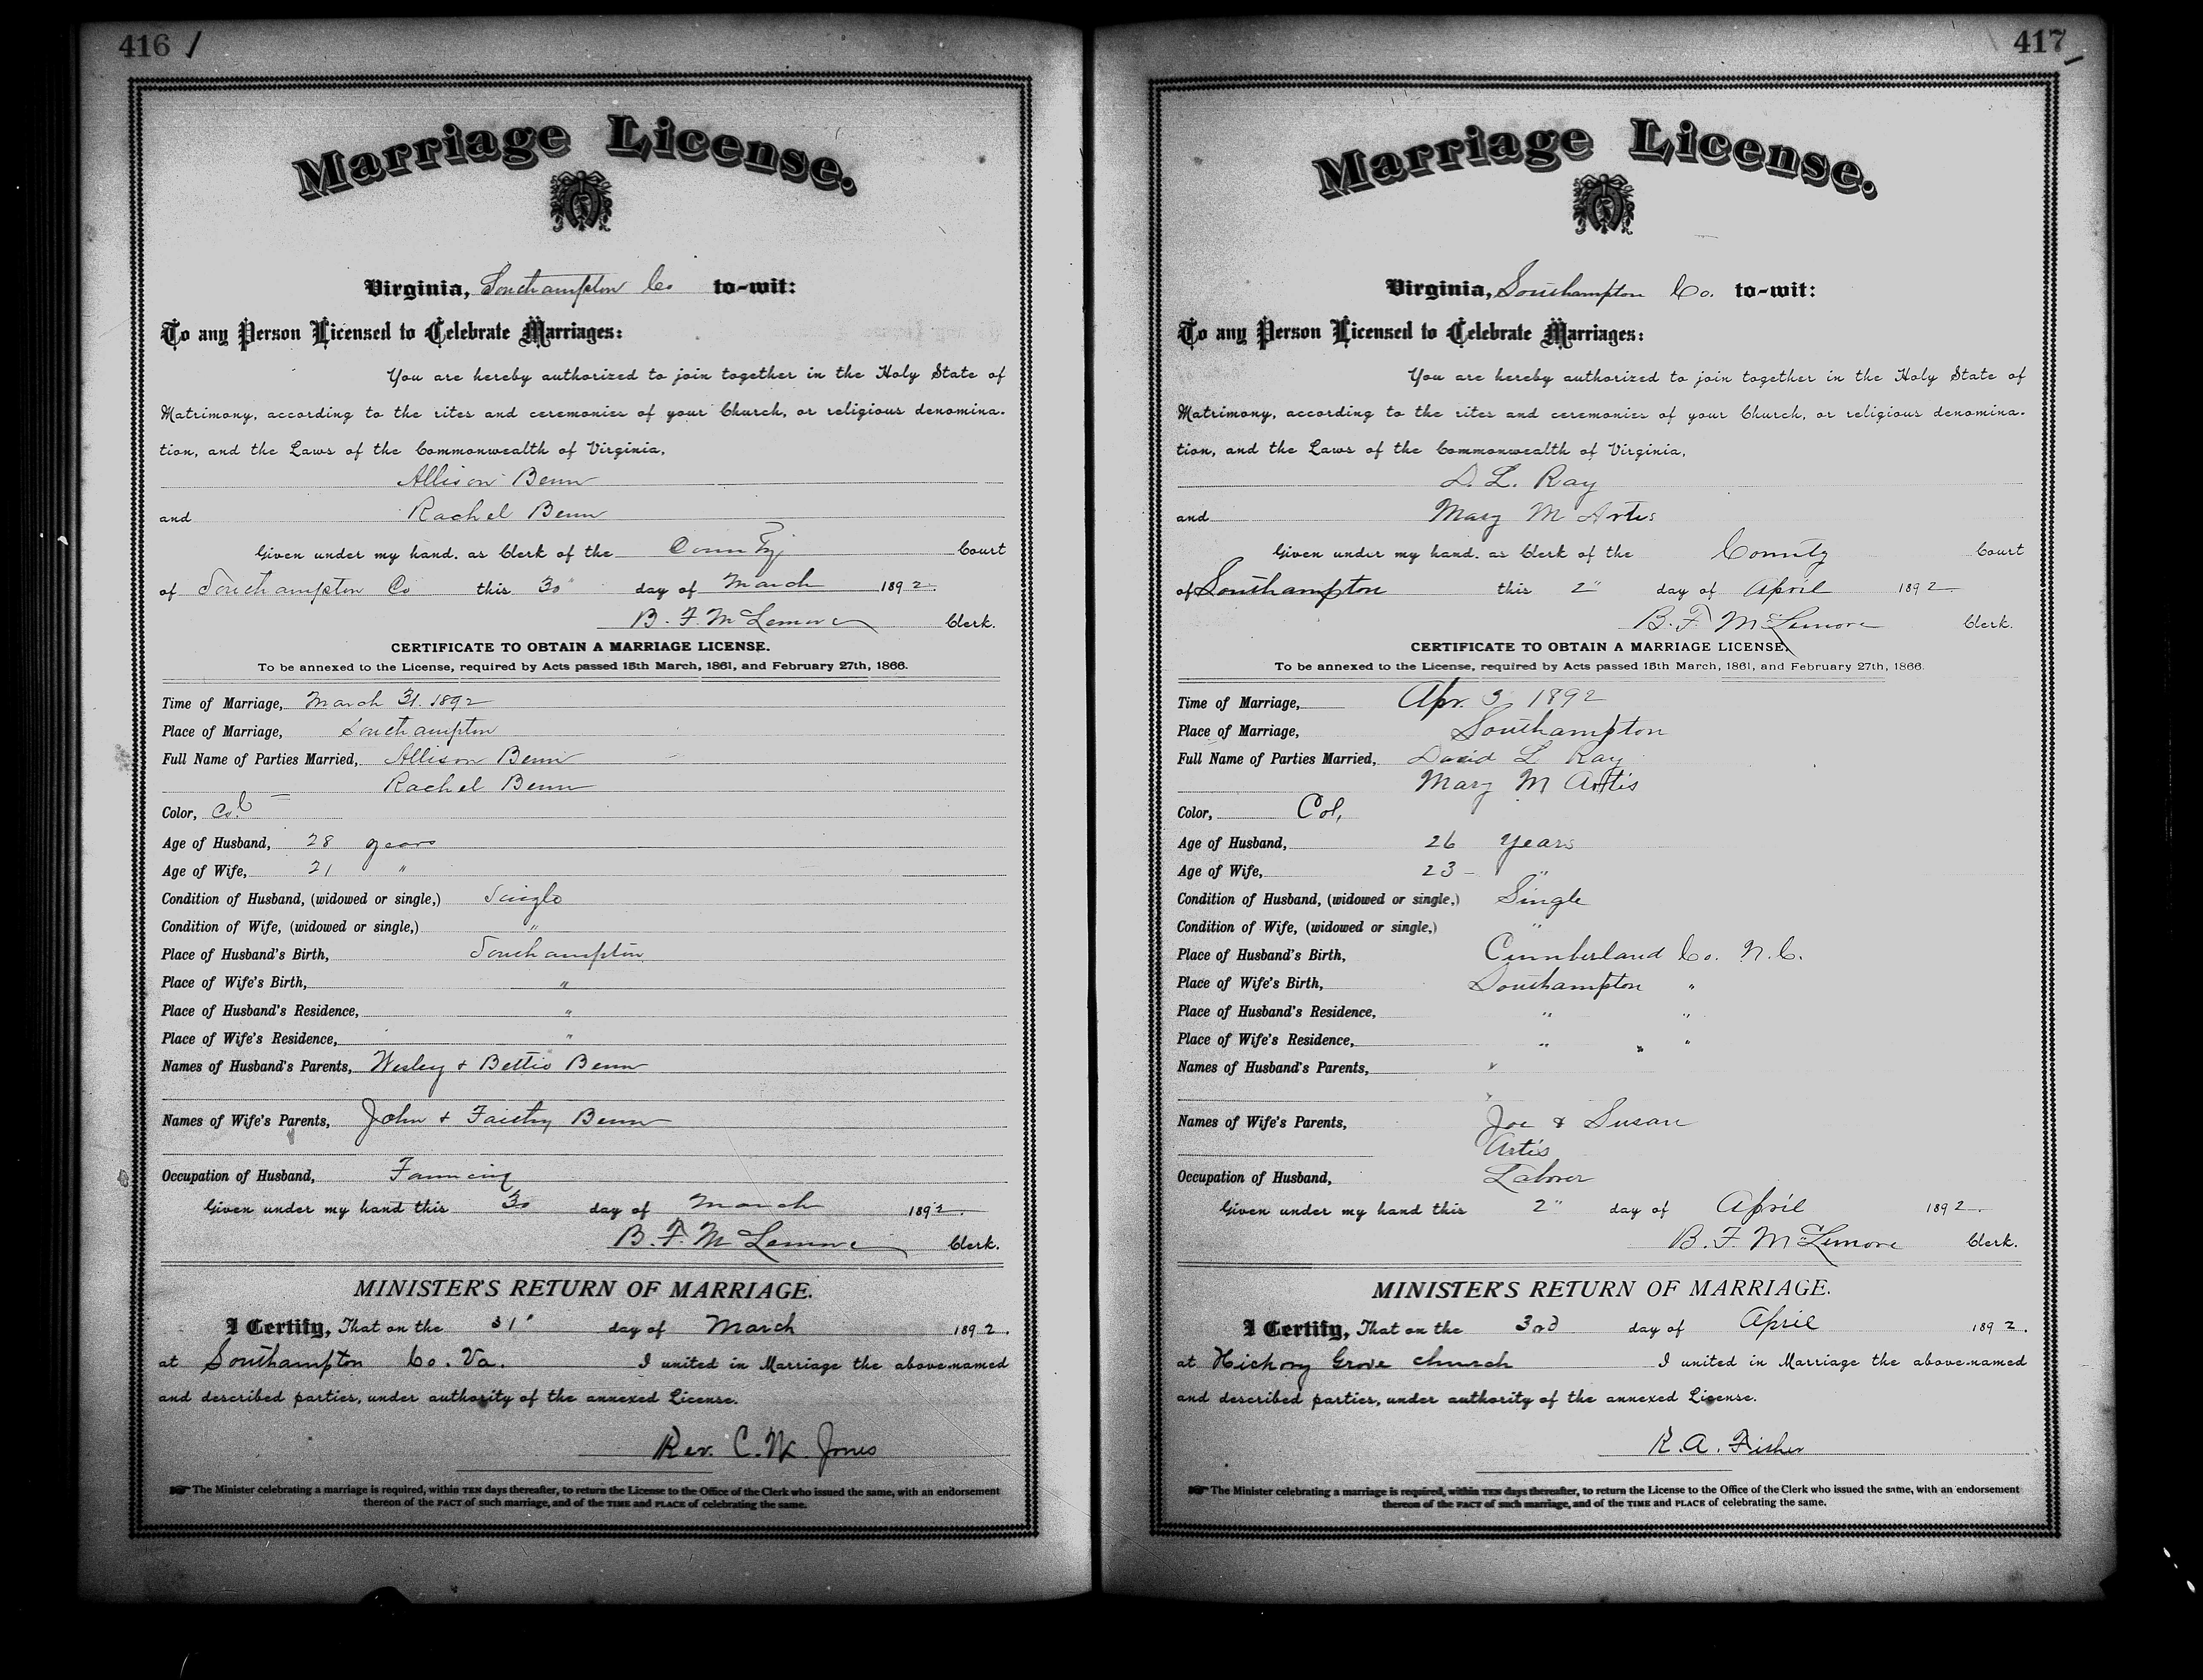 416
Marriage License.
Virginia, Southampton Co to-wit:
To any Person Licensed to Celebrate Marriages:
You are hereby authorized to join together in the Holy State of
Matrimony, according to the rites and ceremonies of your Church, or religious denomina-
tion, and the Laws of the Commonwealth of Virginia,
Allison Benn
and Rachel Benn
Given under my hand, as Clerk of the County Court
of Southampton Co this 30" day of March 1892.
B. F. McLemore Clerk.
CERTIFICATE TO OBTAIN A MARRIAGE LICENSE.
To be annexed to the License, required by Acts passed 15th March, 1861, and February 27th, 1866.
Time of Marriage, March 31. 1892
Place of Marriage, Southampton
Full Name of Parties Married, Allison Benn
Rachel Benn
Color, Col
Age of Husband, 28 years
Age of Wife, 21 "
Condition of Husband, (widowed or single,) Single
Condition of Wife, (widowed or single,) "
Place of Husband's Birth, Southampton
Place of Wife's Birth, "
Place of Husband's Residence, "
Place of Wife's Residence, "
Names of Husband's Parents, Wesley + Bettie Benn
Names of Wife's Parents, John + Benn
Occupation of Husband, Farming
Given under my hand this 30 day of March 1892.
B. F. McLemore Clerk.
MINISTER'S RETURN OF MARRIAGE.
I Certify, That on the 31' day of March 1892.
at Southampton Co. Va. I united in Marriage the above-named
and described parties, under authority of the annexed License.
Rev. C. W. Jones
The Minister celebrating a marriage is required, within TEN days thereafter, to return the License to the Office of the Clerk who issued the same, with an endorsement
thereon of the FACT of such marriage, and of the TIME and PLACE of celebrating the same.
417
Marriage License.
Virginia, Southampton Co. to-wit:
To any Person Licensed to Celebrate Marriages:
You are hereby authorized to join together in the Holy State of
Matrimony, according to the rites and ceremonies of your Church, or religious denomina-
tion, and the Laws of the Commonwealth of Virginia,
D. L. Ray
and Mary M Artis
Given under my hand, as Clerk of the County Court
of Southampton this 2" day of April 1892
B. F. McLemore Clerk.
CERTIFICATE TO OBTAIN A MARRIAGE LICENSE.
To be annexed to the License, required by Acts passed 15th March, 1861, and February 27th, 1866.
Time of Marriage, Apr. 3 1892
Place of Marriage, Southampton
Full Name of Parties Married, David L Ray
Mary M Artis
Color, Col,
Age of Husband, 26 Years
Age of Wife, 23 - "
Condition of Husband, (widowed or single,) Single
Condition of Wife, (widowed or single,) "
Place of Husband's Birth, Cumberland Co. N.C.
Place of Wife's Birth, Southampton "
Place of Husband's Residence, " "
Place of Wife's Residence, " " "
Names of Husband's Parents,
Names of Wife's Parents, Joe & Susan
Artis
Occupation of Husband, Laborer
Given under my hand this 2" day of April 1892.
B. F. McLemore Clerk.
MINISTER'S RETURN OF MARRIAGE.
I Certify, That on the 3rd day of April 1892.
at Hickory Grove church I united in Marriage the above-named
and described parties, under authority of the annexed License.
R. A. Fisher
The Minister celebrating a marriage is required, within TEN days thereafter, to return the License to the Office of the Clerk who issued the same, with an endorsement
thereon of the FACT of such marriage, and of the TIME and PLACE of celebrating the same.